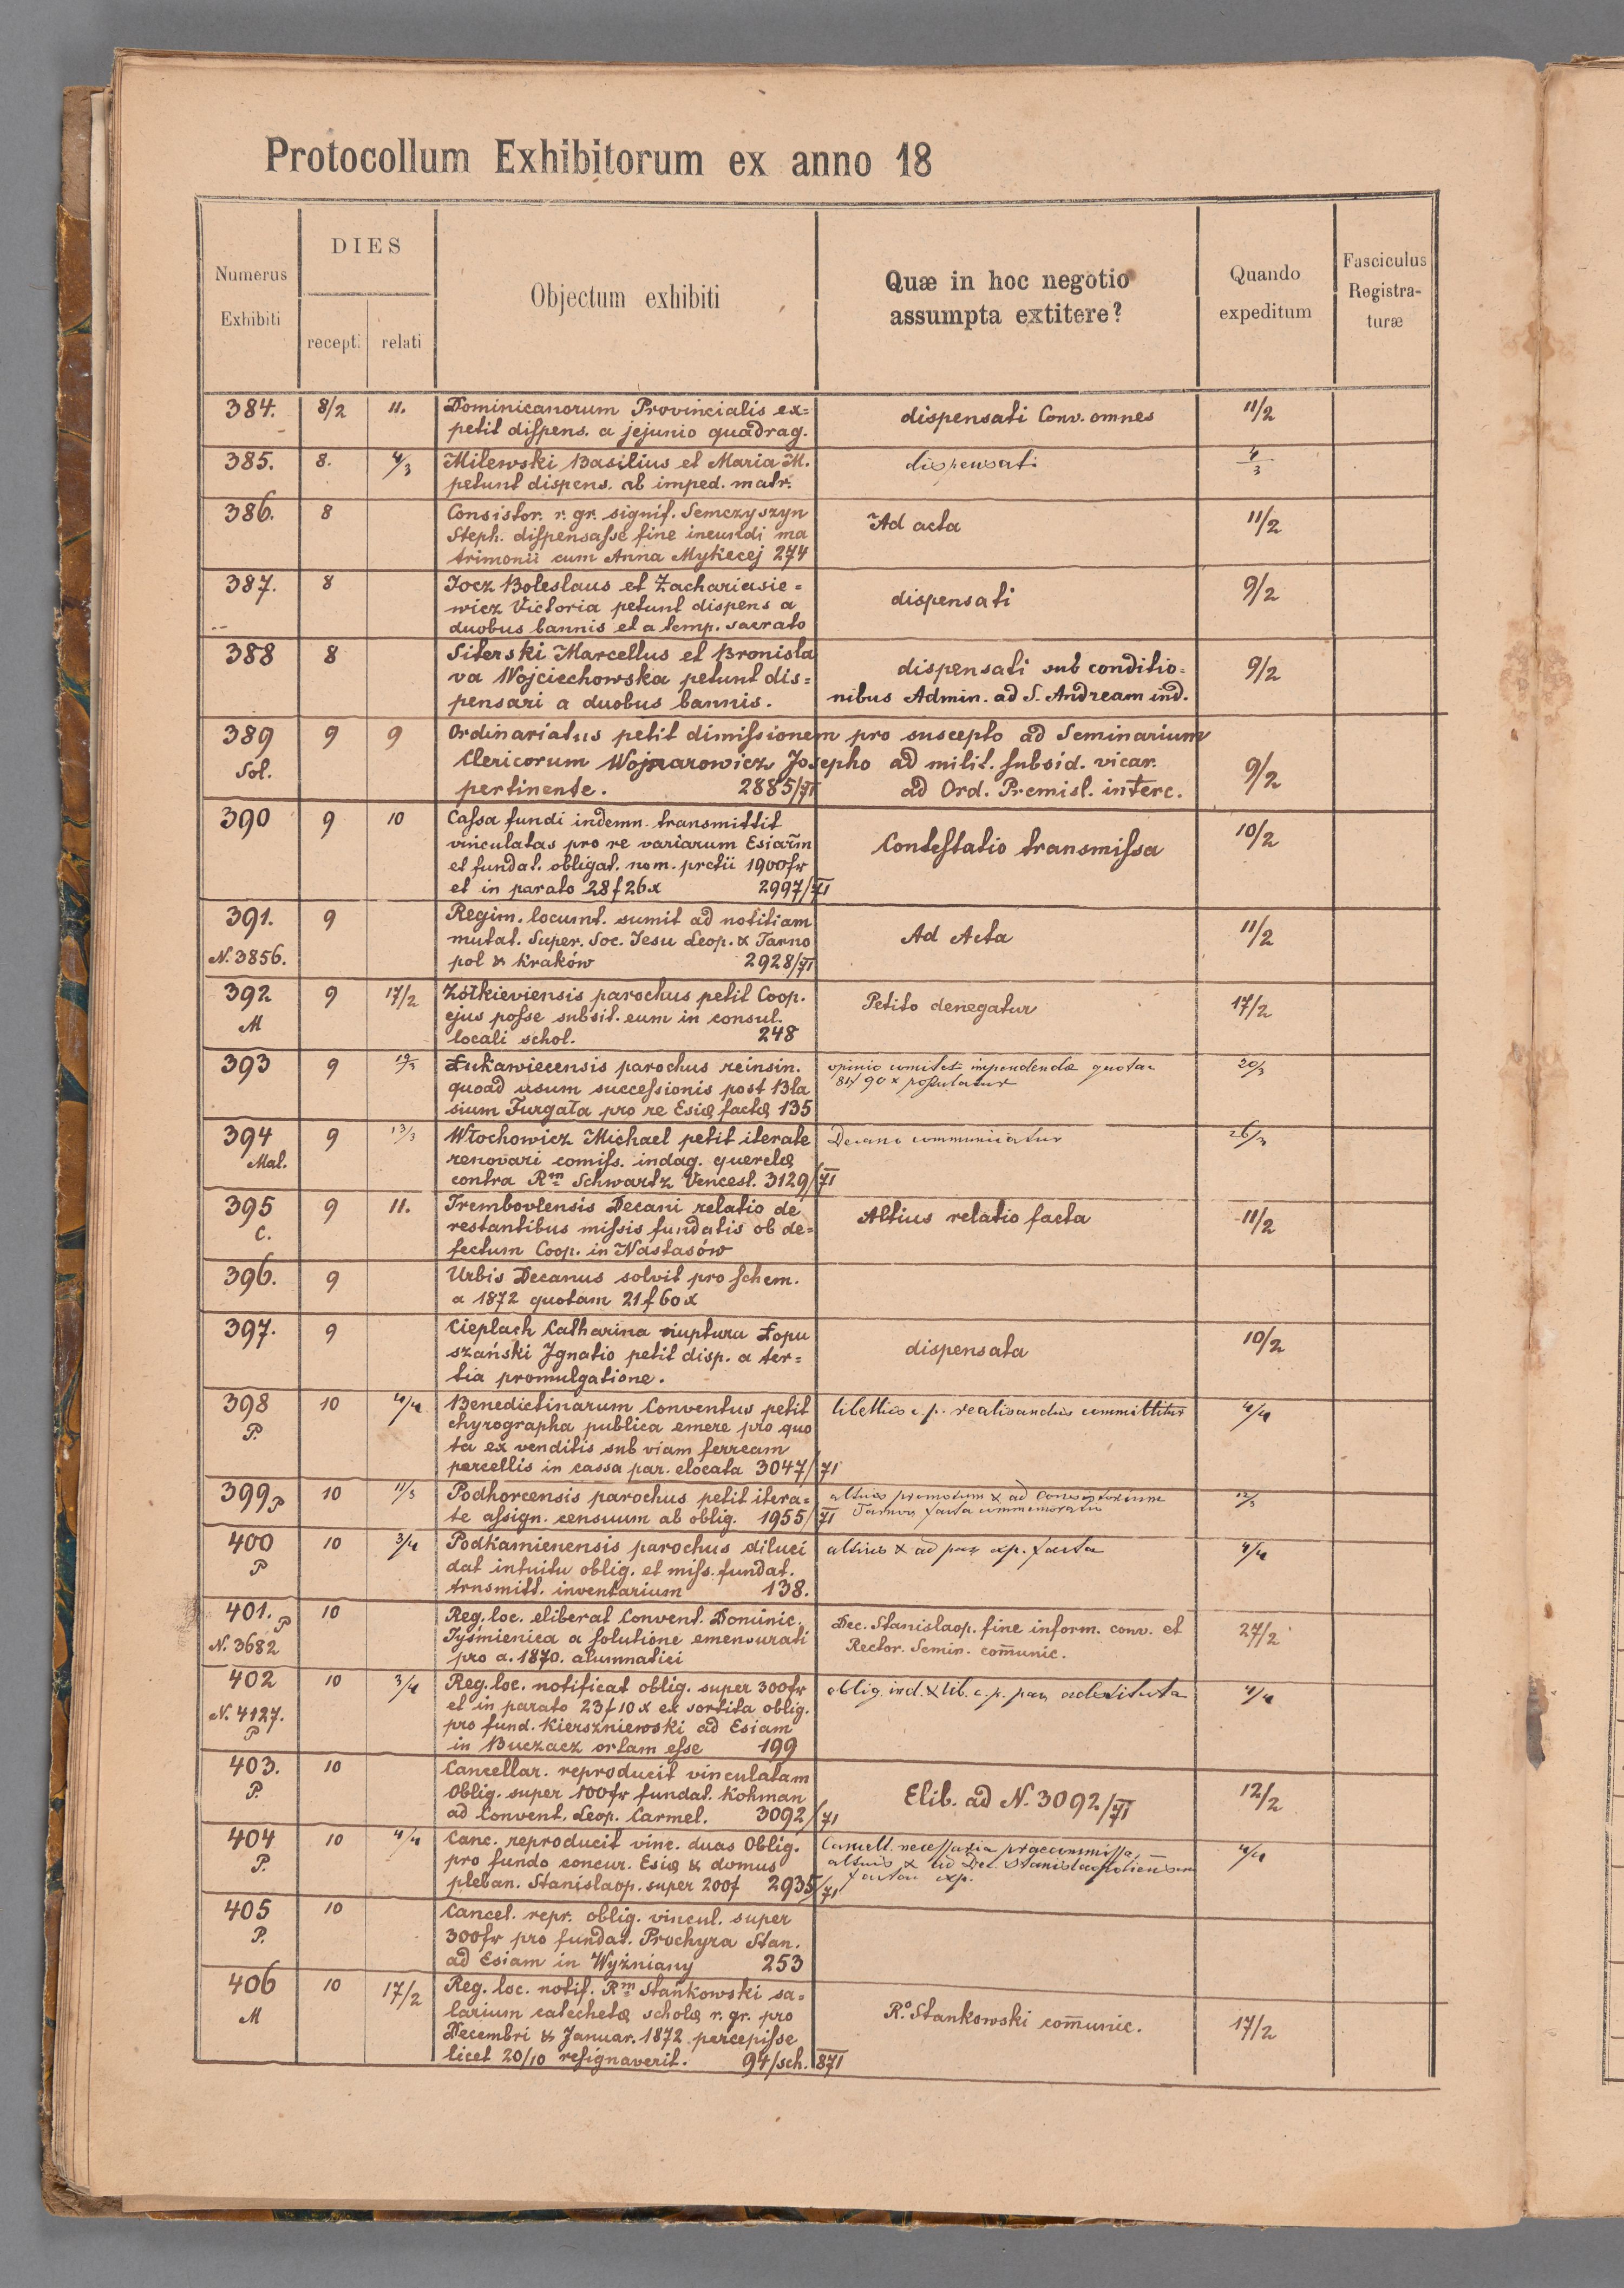 Protocollum Exhibitorum ex anno 18
Numerus Exhibiti
DIES
recepti
relati
Objectum exhibiti
Quæ in hoc negotio assumpta extitere?
Quando expeditum
Fasciculus Registra-
turæ
384. 8/2 11. Dominicanorum Provincialis ex= dispensati Conv. omnes 11/2
petit dispens. a jejunio quadrag.
385. 8. 4/3 Milewski Basilius et Maria M. dispensati 4/3
petunt dispens. ab imped. matr.
386. 8 Consistor. r. gr. signif. Semczyszyn Ad acta 11/2
Steph. dispensasse fine ineundi ma
trimonii cum Anna Mykecej 274
387. 8 Jocz Boleslaus et Zachariasie= dispensati 9/2
wicz Victoria petunt dispens a
duobus bannis et a temp. sacrato
388 8 Siterski Marcellus et Bronisla dispensati sub conditio= 9/2
va Wojciechowska petunt dis= nibus Admin. ad S. Andream ind.
pensari a duobus bannis.
389 9 9 Ordinariatus petit dimissionem pro suscepto ad Seminarium
Sol. Clericorum Wojnarowicz Josepho ad milit. subsid. vicar. 9/2
pertinente. 2885/71 ad Ord. Premisl. interc.
390 9 10 Cassa fundi indemn. transmittit Contestatio transmissa 10/2
vinculatas pro re variarum Esiarm
et fundat. obligat. nom. pretii 1900fr
et in parato 28f 26x 2997/71
391. 9 Regim. locumt. sumit ad notitiam Ad Acta 11/2
N. 3856. mutat. Super. Soc. Jesu Leop. & Tarno
pol & Kraków 2928/71
392 9 17/2 Żółkieviensis parochus petit Coop. Petito denegatur 17/2
M ejus posse subsit. eum in consul.
locali schol. 248
393 9 19/3 Łukawiecensis parochus reinsin. opinio impendendæ quotae 20/3
quoad usum successionis post Bla 81f 90x postulatur
sium Furgała pro re Esiæ factæ 135
394 9 13/3 Włochowicz Michael petit iterate Decano communicatur 26/3
Mal. renovari comiss. indag. querelæ
contra Rm Schwartz Vencesl. 3129/71
395 9 11. Trembovlensis Decani relatio de Altius relatio facta 11/2
C. restantibus missis fundatis ob de=
fectum Coop. in Nastasów
396. 9 Urbis Decanus solvit pro schem.
a 1872 quotam 21f 60x
397. 9 Cieplach Catharina nuptura Łopu dispensata 10/2
szański Ignatio petit disp. a ter=
tia promulgatione.
398 10 4/4 Benedictinarum Conventus petit libellus c. p. realisandus committitur 4/4
P. chyrographa publica emere pro quo
ta ex venditis sub viam ferream
percellis in cassa par. elocata 3047/71
399 P 10 11/3 Podhorcensis parochus petit itera= altius promotum & ad Consistorium 12/3
te assign. censuum ab oblig. 1955/71 Tarnov. facta commemoratio
400 10 3/4 Podkamienensis parochus diluci altius & ad par. exp. facta 4/4
P dat intuitu oblig. et miss. fundat.
trnsmitt. inventarium 138.
401. P 10 Reg. loc. eliberat Convent. Dominic. Dec. Stanislaop. fine inform. conv. et 27/2
N. 3682 Tyśmienica a solutione emensurati Rector. Semin. comunic.
pro a. 1870. alumnatici
402 10 3/4 Reg. loc. notificat oblig. super 300fr oblig. ind. & lib. c. p. par. 4/4
N. 4127. et in parato 23f 10x ex sortita oblig.
P pro fund. Kierszniewski ad Esiam
in Buczacz ortam esse 199
403. 10 Cancellar. reproducit vinculatam Elib. ad N. 3092/71 12/2
P. Oblig. super 100fr fundat. Kohman
ad Convent. Leop. Carmel. 3092/71
404 10 4/4 Canc. reproducit vinc. duas Oblig. Cancell. necessaria praecommissa, 4/4
P. pro fundo concur. Esiæ & domus altius & ad Dec. Stanislaopoliensem
pleban. Stanislaop. super 200f 2935/71 facta exp.
405 10 Cancel. repr. oblig. vincul. super
P. 300fr pro fundat. Prochyra Stan.
ad Esiam in Wyżniany 253
406 10 17/2 Reg. loc. notif. Rm Stankowski sa= Ro. Stankowski comunic. 17/2
M larium catechetæ scholæ r. gr. pro
Decembri & Januar. 1872 percepisse
licet 20/10 resignaverit. 94/sch. 871